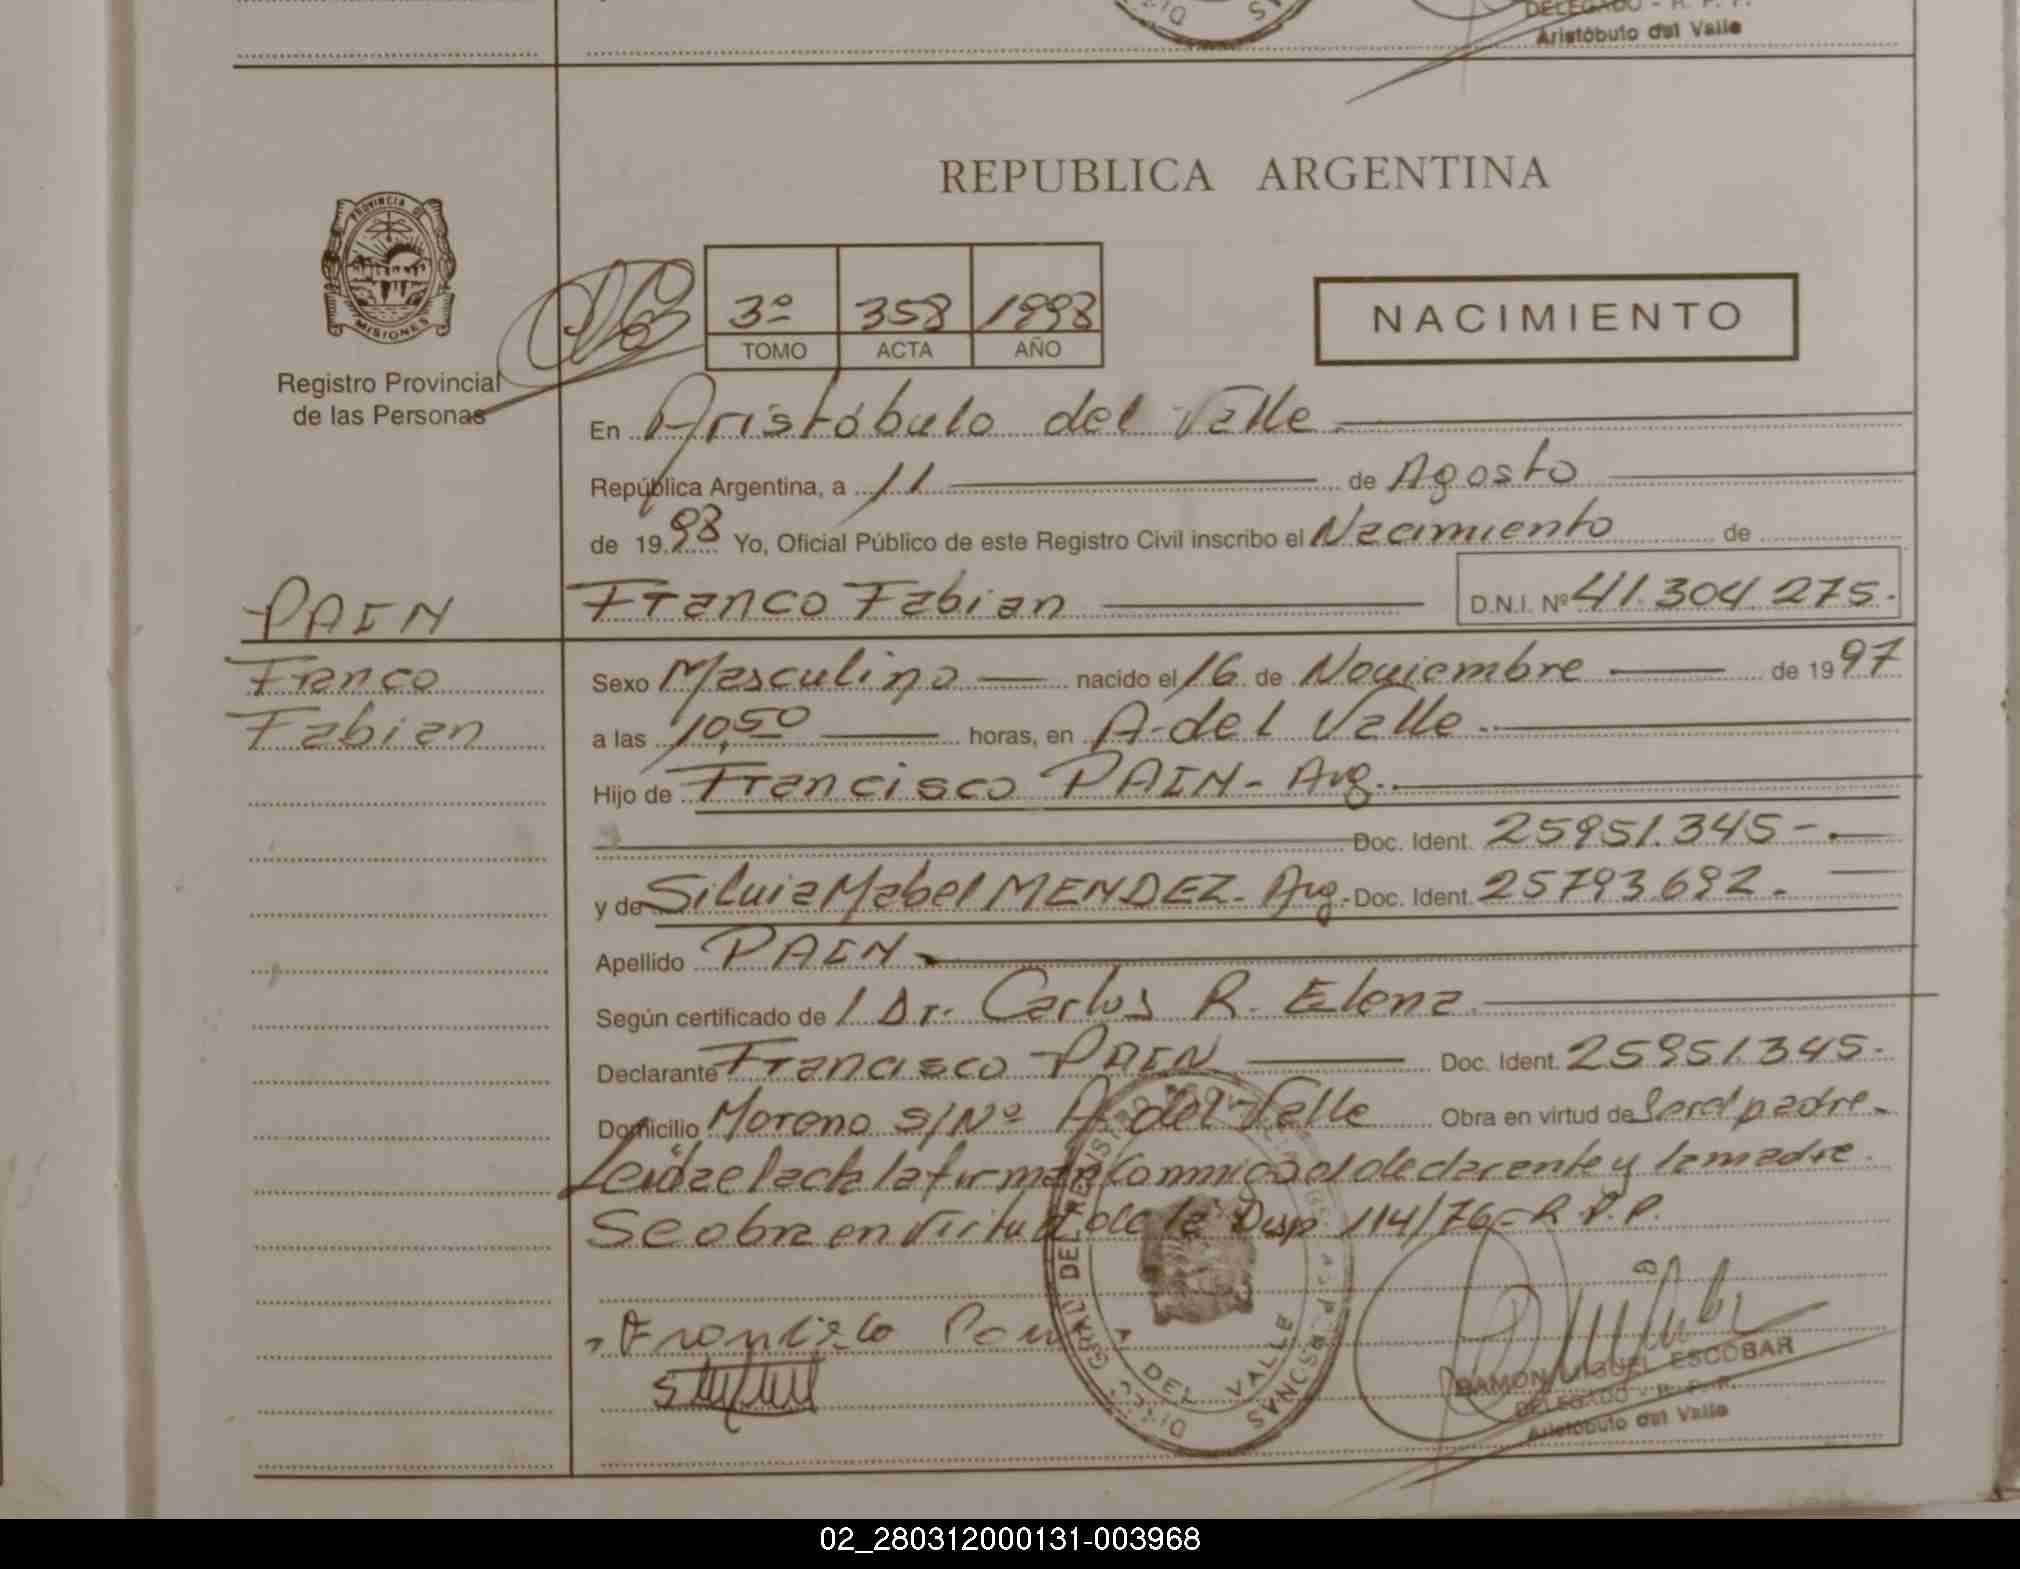 DELEGADO - R. P. P.
Aristóbulo del Valle
REPUBLICA ARGENTINA
PROVINCIA DE
MISIONES
Registro Provincial
de las Personas
3º 358 1998
TOMO ACTA AÑO
NACIMIENTO
En Aristóbulo del Valle
República Argentina, a 11 de Agosto
de 1998 Yo, Oficial Público de este Registro Civil inscribo el Nacimiento de
PAIN
Franco Fabian D.N.I. Nº 41.304.275.
Franco
Fabian
Sexo Masculino nacido el 16 de Noviembre de 1997
a las 10,50 horas, en A. del Valle
Hijo de Francisco PAIN - Arg.
Doc. Ident. 25951.345-.
y de Silvia Mabel MENDEZ - Arg. Doc. Ident. 25793.692.
Apellido PAIN
Según certificado de l Dr. Carlos R. Elena
Declarante Francisco PAIN Doc. Ident. 25951.345.
Domicilio Moreno S/Nº A. del Valle Obra en virtud de Ser el padre
Leida el acta la firman Conmigo el declarante y la madre.
Se obra en Virtud de la Disp. 114/76 - R.P.P.
DEL VALLE
RAMON MIGUEL ESCOBAR
DELEGADO - R. P. P.
Aristóbulo del Valle
02_280312000131-003968